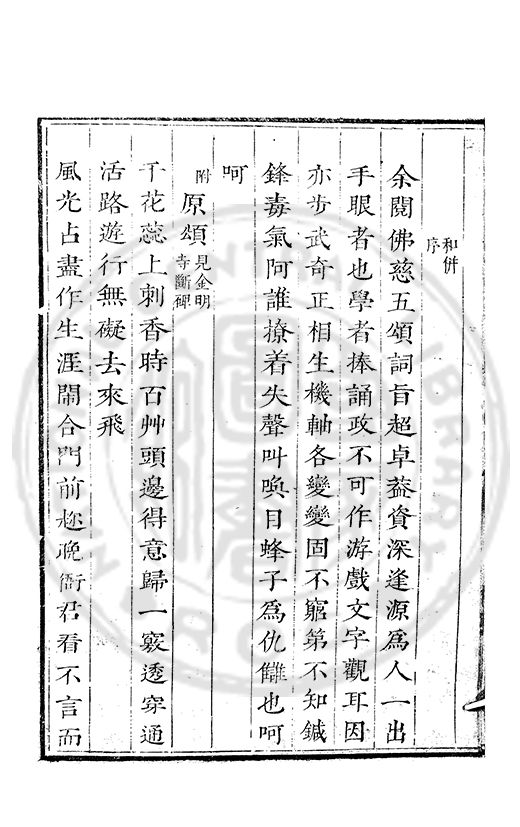 和併
序
余閱佛慈五頌詞旨超卓葢資深逢源爲人一出
手眼者也學者捧誦政不可作游戲文字觀耳因
亦步武奇正相生機軸各變變固不窮第不知鍼
鋒毒氣阿誰撩着失聲叫喚目蜂子爲仇讎也呵
呵
附原頌見金明
寺斷碑
千花蕊上刺香時百艸頭邊得意歸一竅透穿通
活路遊行無礙去來飛
風光占盡作生涯鬧合門前趂晚衙君看不言而